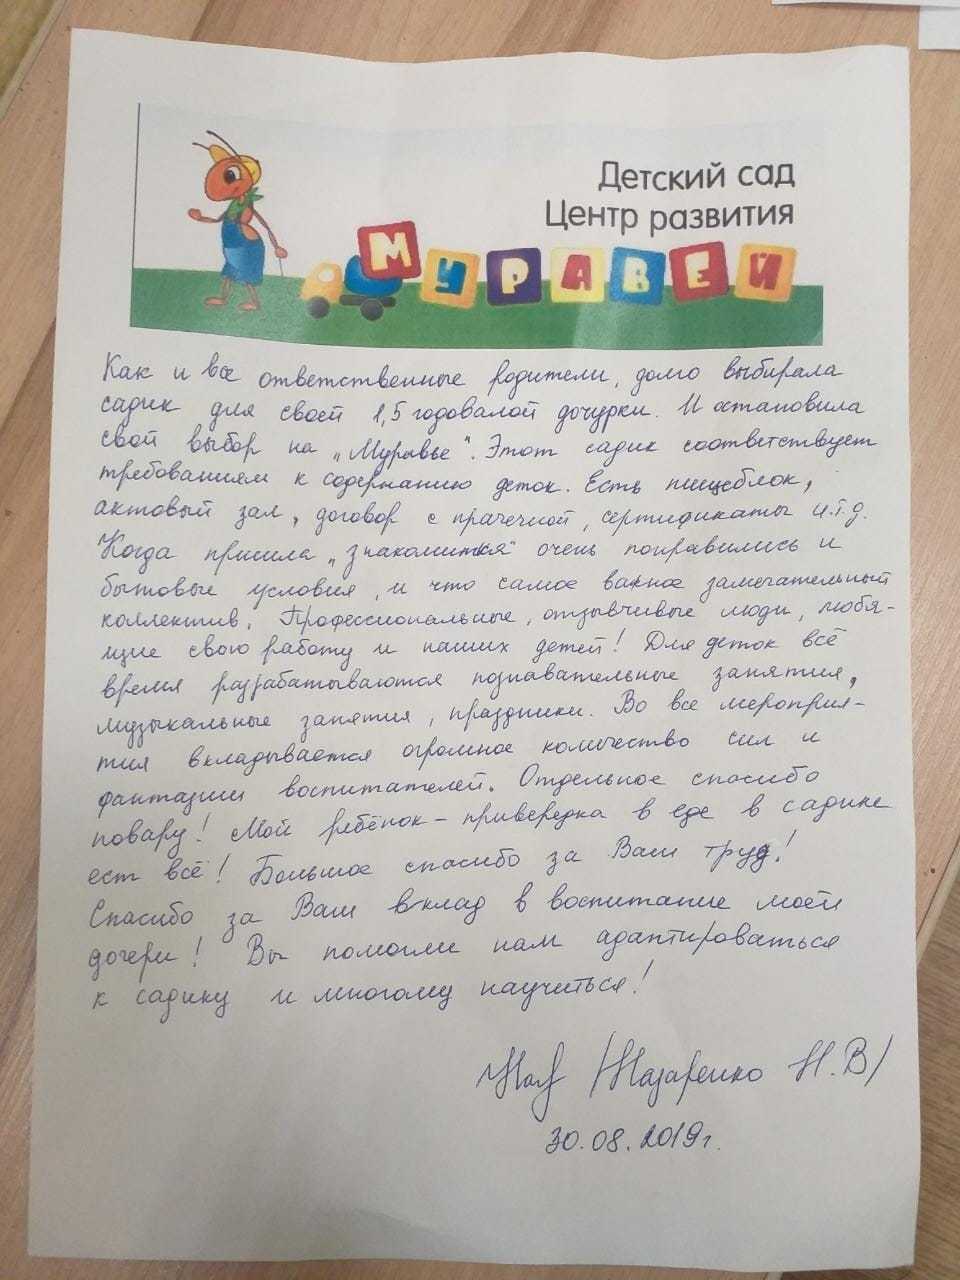 Детский сад
Центр развития
МУРАВЕЙ
Как и все ответственные родители, долго выбирала
садик для своей 1,5 годовалой дочурки. И остановила
свой выбор на „Муравье". Этот садик соответствует
требованиям к содержанию деток. Есть пищеблок,
актовый зал, договор с прачечной, сертификаты и.т.д.
Когда пришла „знакомиться" очень понравились и
бытовые условия, и что самое важное замечательный
коллектив. Профессиональные, отзывчивые люди, любя-
щие свою работу и наших детей! Для деток всё
время разрабатываются познавательные занятия,
музыкальные занятия, праздники. Во все мероприя-
тия вкладывается огромное количество сил и
фантазии воспитателей. Отдельное спасибо
повару! Мой ребёнок – привередка в еде в садике
ест всё! Большое спасибо за Ваш труд!
Спасибо за Ваш вклад в воспитание моей
дочери! Вы помогли нам адаптироваться
к садику и многому научиться!
/Назаренко Н.В/
30.08.2019г.